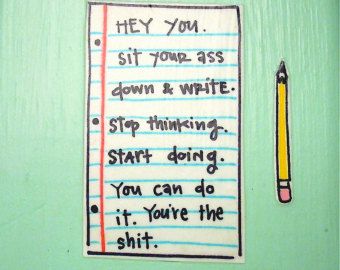 HEY YOU.
sit your ass
down & WRITE.
Stop thinking.
START doing.
You can do
it. You're the
shit.